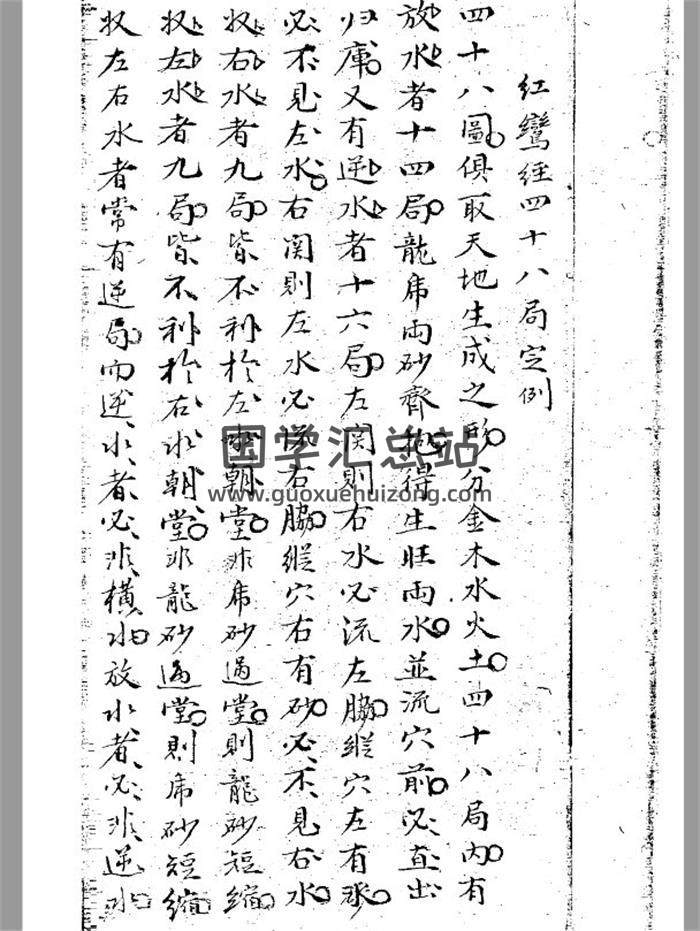 紅鸞經四十八局定例
四十八圖俱取天地生成之形分金木水火土四十八局內有
放水者十四局龍虎兩砂齊抱得生旺兩水並流穴前必直出
归庫又有逆水者十六局左関則右水必流左脇縱穴左有砂
必不見左水右関則左水必流右脇縱穴右有砂必不見右水
収右水者九局皆不利於左水朝堂非虎砂過堂則龍砂短縮
収左水者九局皆不利於右水朝堂非龍砂過堂則虎砂短縮
収左右水者常有逆局而逆水者必非橫水放水者必非逆水
国学汇总站
www.guoxuehuizong.com